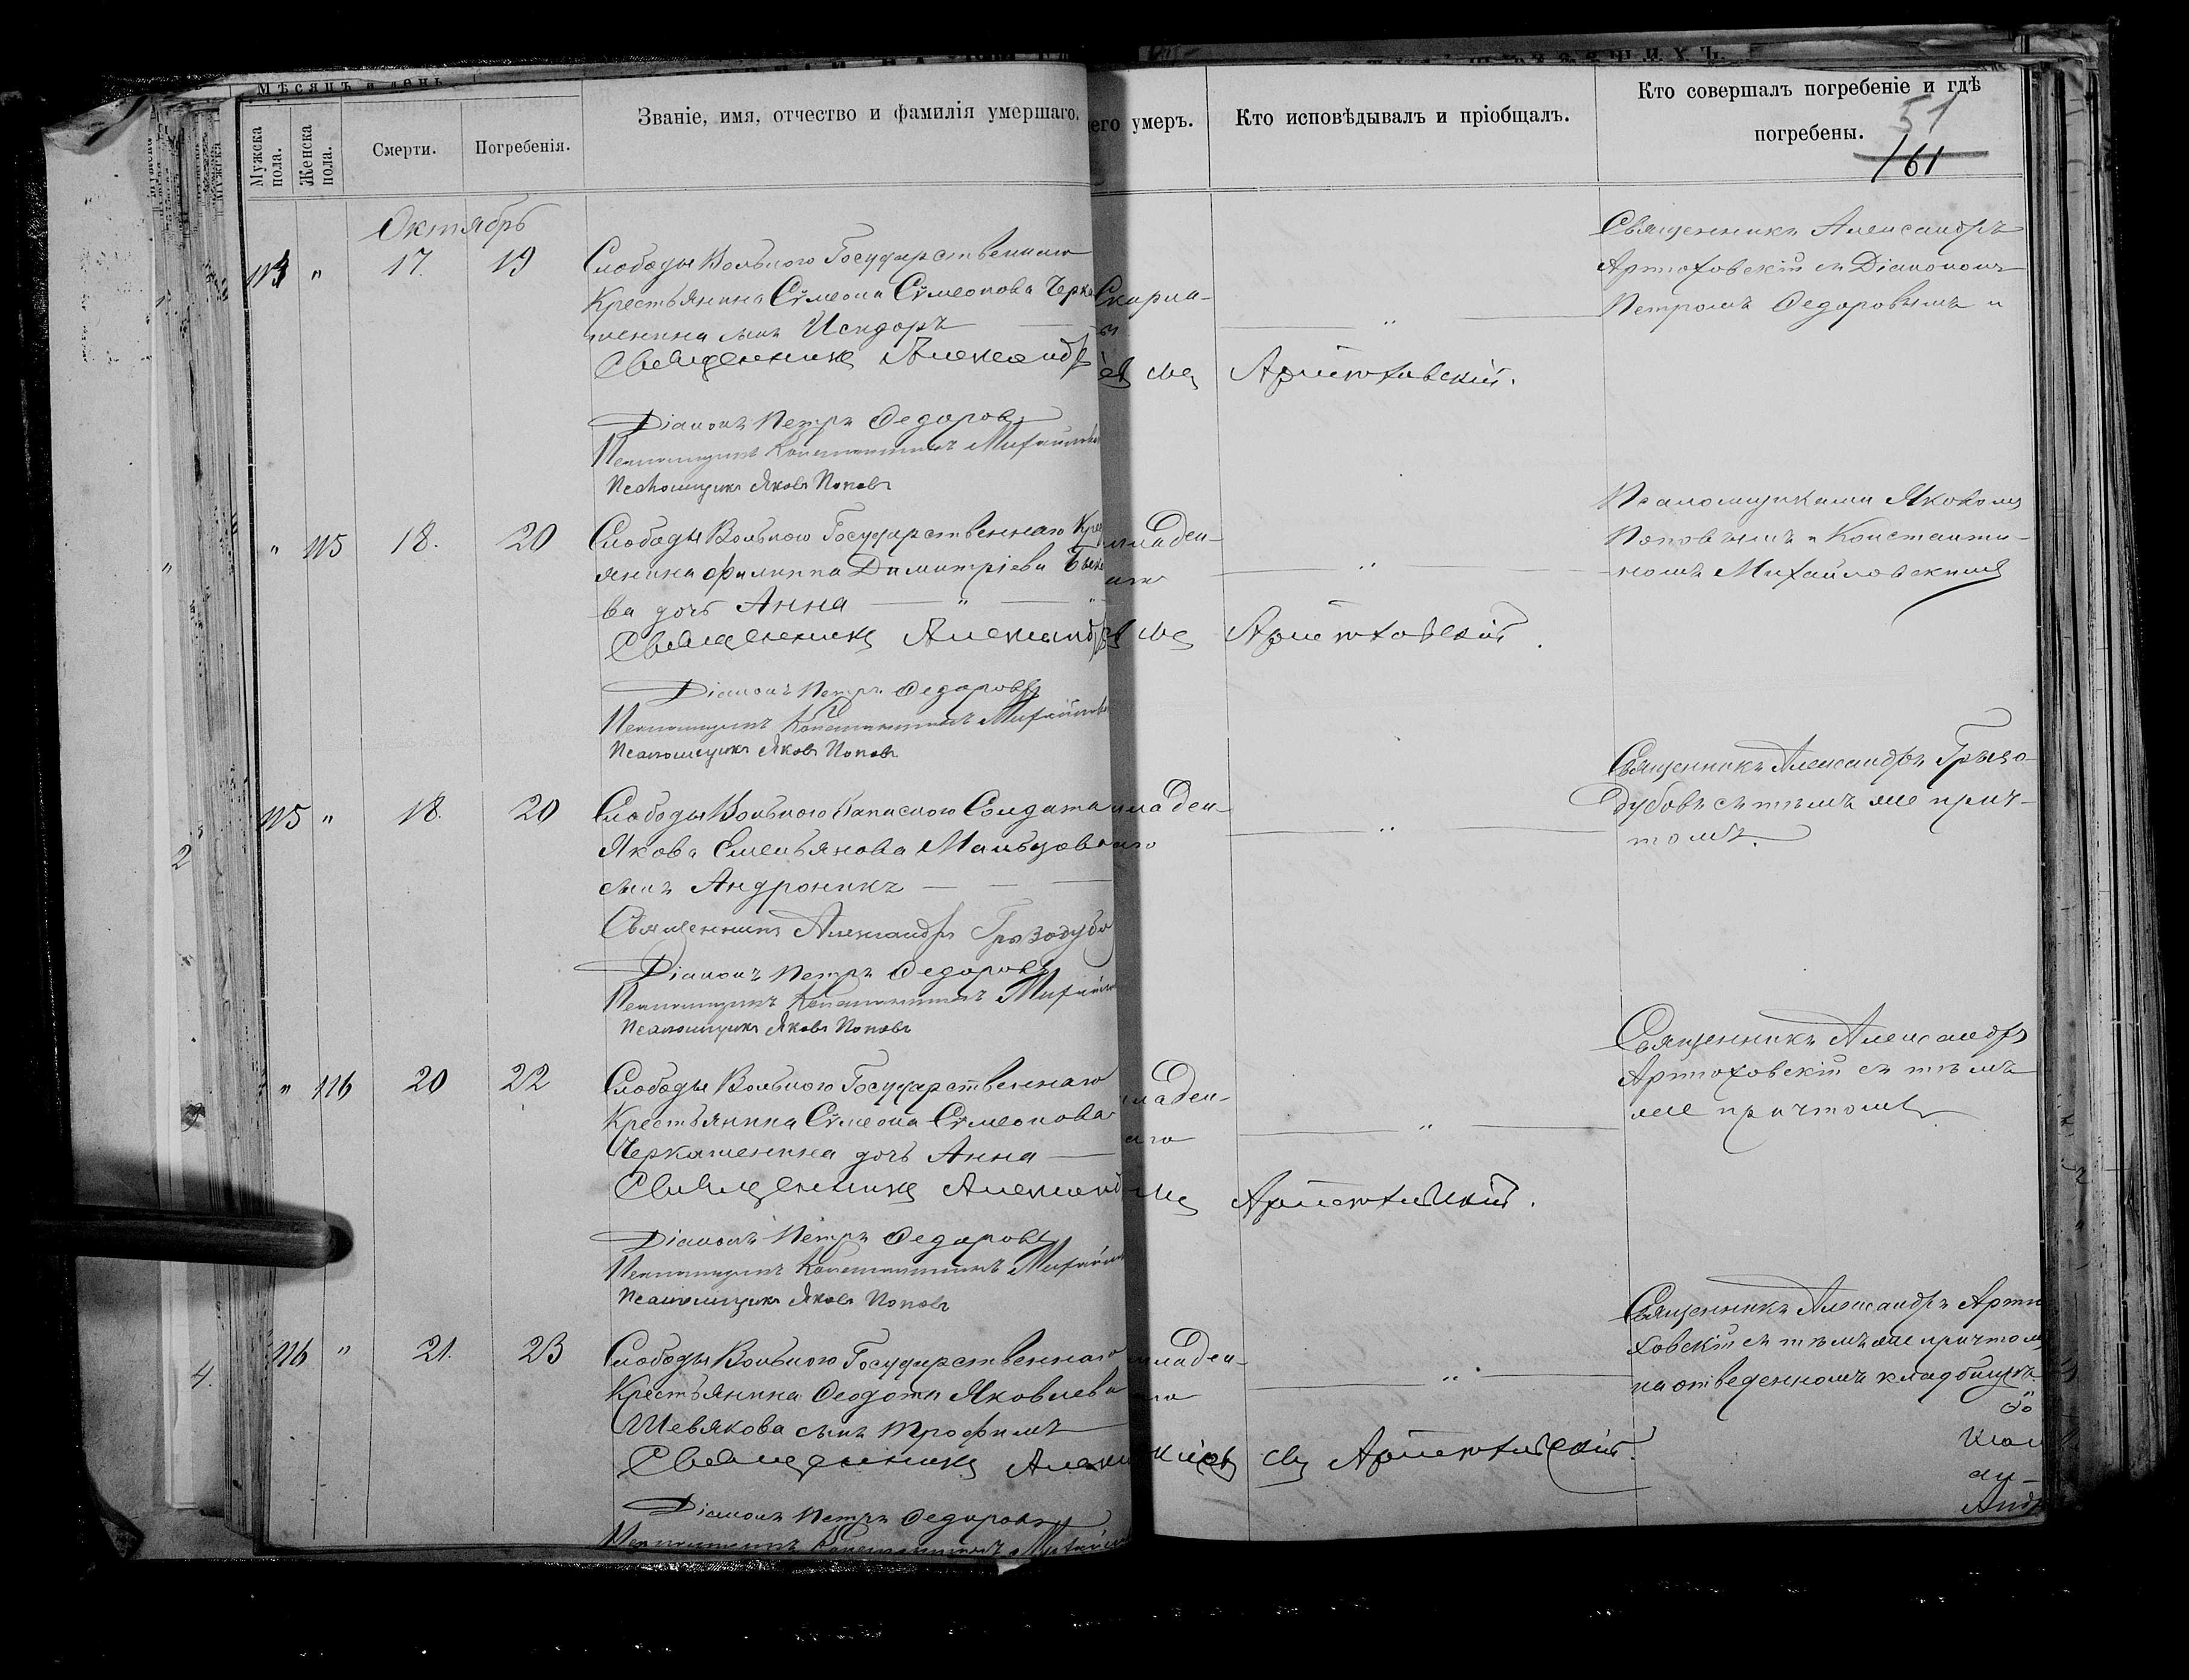 Мѣсяцъ и день
Мужска пола.
Женска пола.
Смерти.
Погребенія.
Званіе, имя, отчество и фамилія умершаго.
его умеръ.
Кто исповѣдывалъ и пріобщалъ.
Кто совершалъ погребеніе и гдѣ
погребены.
51
161
Октябрь
17. 19
Слободы Вольного Государственнаго
Крестьянина Сѵмеона Сѵмеонова Черка
шенина сынъ Исидоръ
Священникъ Александр
Діаконъ Петръ Федоровъ
Псаломщикъ Константинъ Михайлов
Псаломщикъ Яковъ Поповъ
Скарла-
Артюховскій.
Священникъ Александръ
Артюховскій съ Діакономъ
Петромъ Федоровымъ и
Псаломщиками Яковомъ
Поповымъ и Константи-
номъ Михайловскимъ
" 115 18. 20
Слободы Вольного Государственнаго Крес
янина Филиппа Димитріева
ва дочь Анна — " —
Священникъ Александр
Діаконъ Петръ Федоровъ
Псаломщикъ Константинъ Михайлов
Псаломщикъ Яковъ Поповъ
младен-
Артюховскій.
115 " 18. 20
Слободы Вольного Запасного Солдата
Якова Емельянова Мальцова
сынъ Андроникъ
Священникъ Александръ Грызодубо
Діаконъ Петръ Федоровъ
Псаломщикъ Константинъ Михайло
Псаломщикъ Яковъ Поповъ
младен-
Священникъ Александръ Грызо-
дубовъ съ тѣмъ же прич-
томъ.
" 116 20 22
Слободы Вольного Государственнаго
Крестьянина Сѵмеона Сѵмеонова
Черкашенина дочь Анна
Священникъ Александ
Діаконъ Петръ Федоровъ
Псаломщикъ Константинъ Михайло
Псаломщикъ Яковъ Поповъ
младен-
Артюховскій.
Священникъ Александръ
Артюховскій съ тѣмъ
же причтомъ
116 " 21. 23
Слободы Вольного Государственнаго
Крестьянина Феодота Яковлева
Шевякова сынъ Трофимъ
Священникъ
Діаконъ Петръ Федоровъ
Псаломщикъ Константинъ Михайло
младен-
Артюховскій.
Священникъ Александръ Артю
ховскій съ тѣмъ же причтомъ
на отведенномъ кладбищѣ.